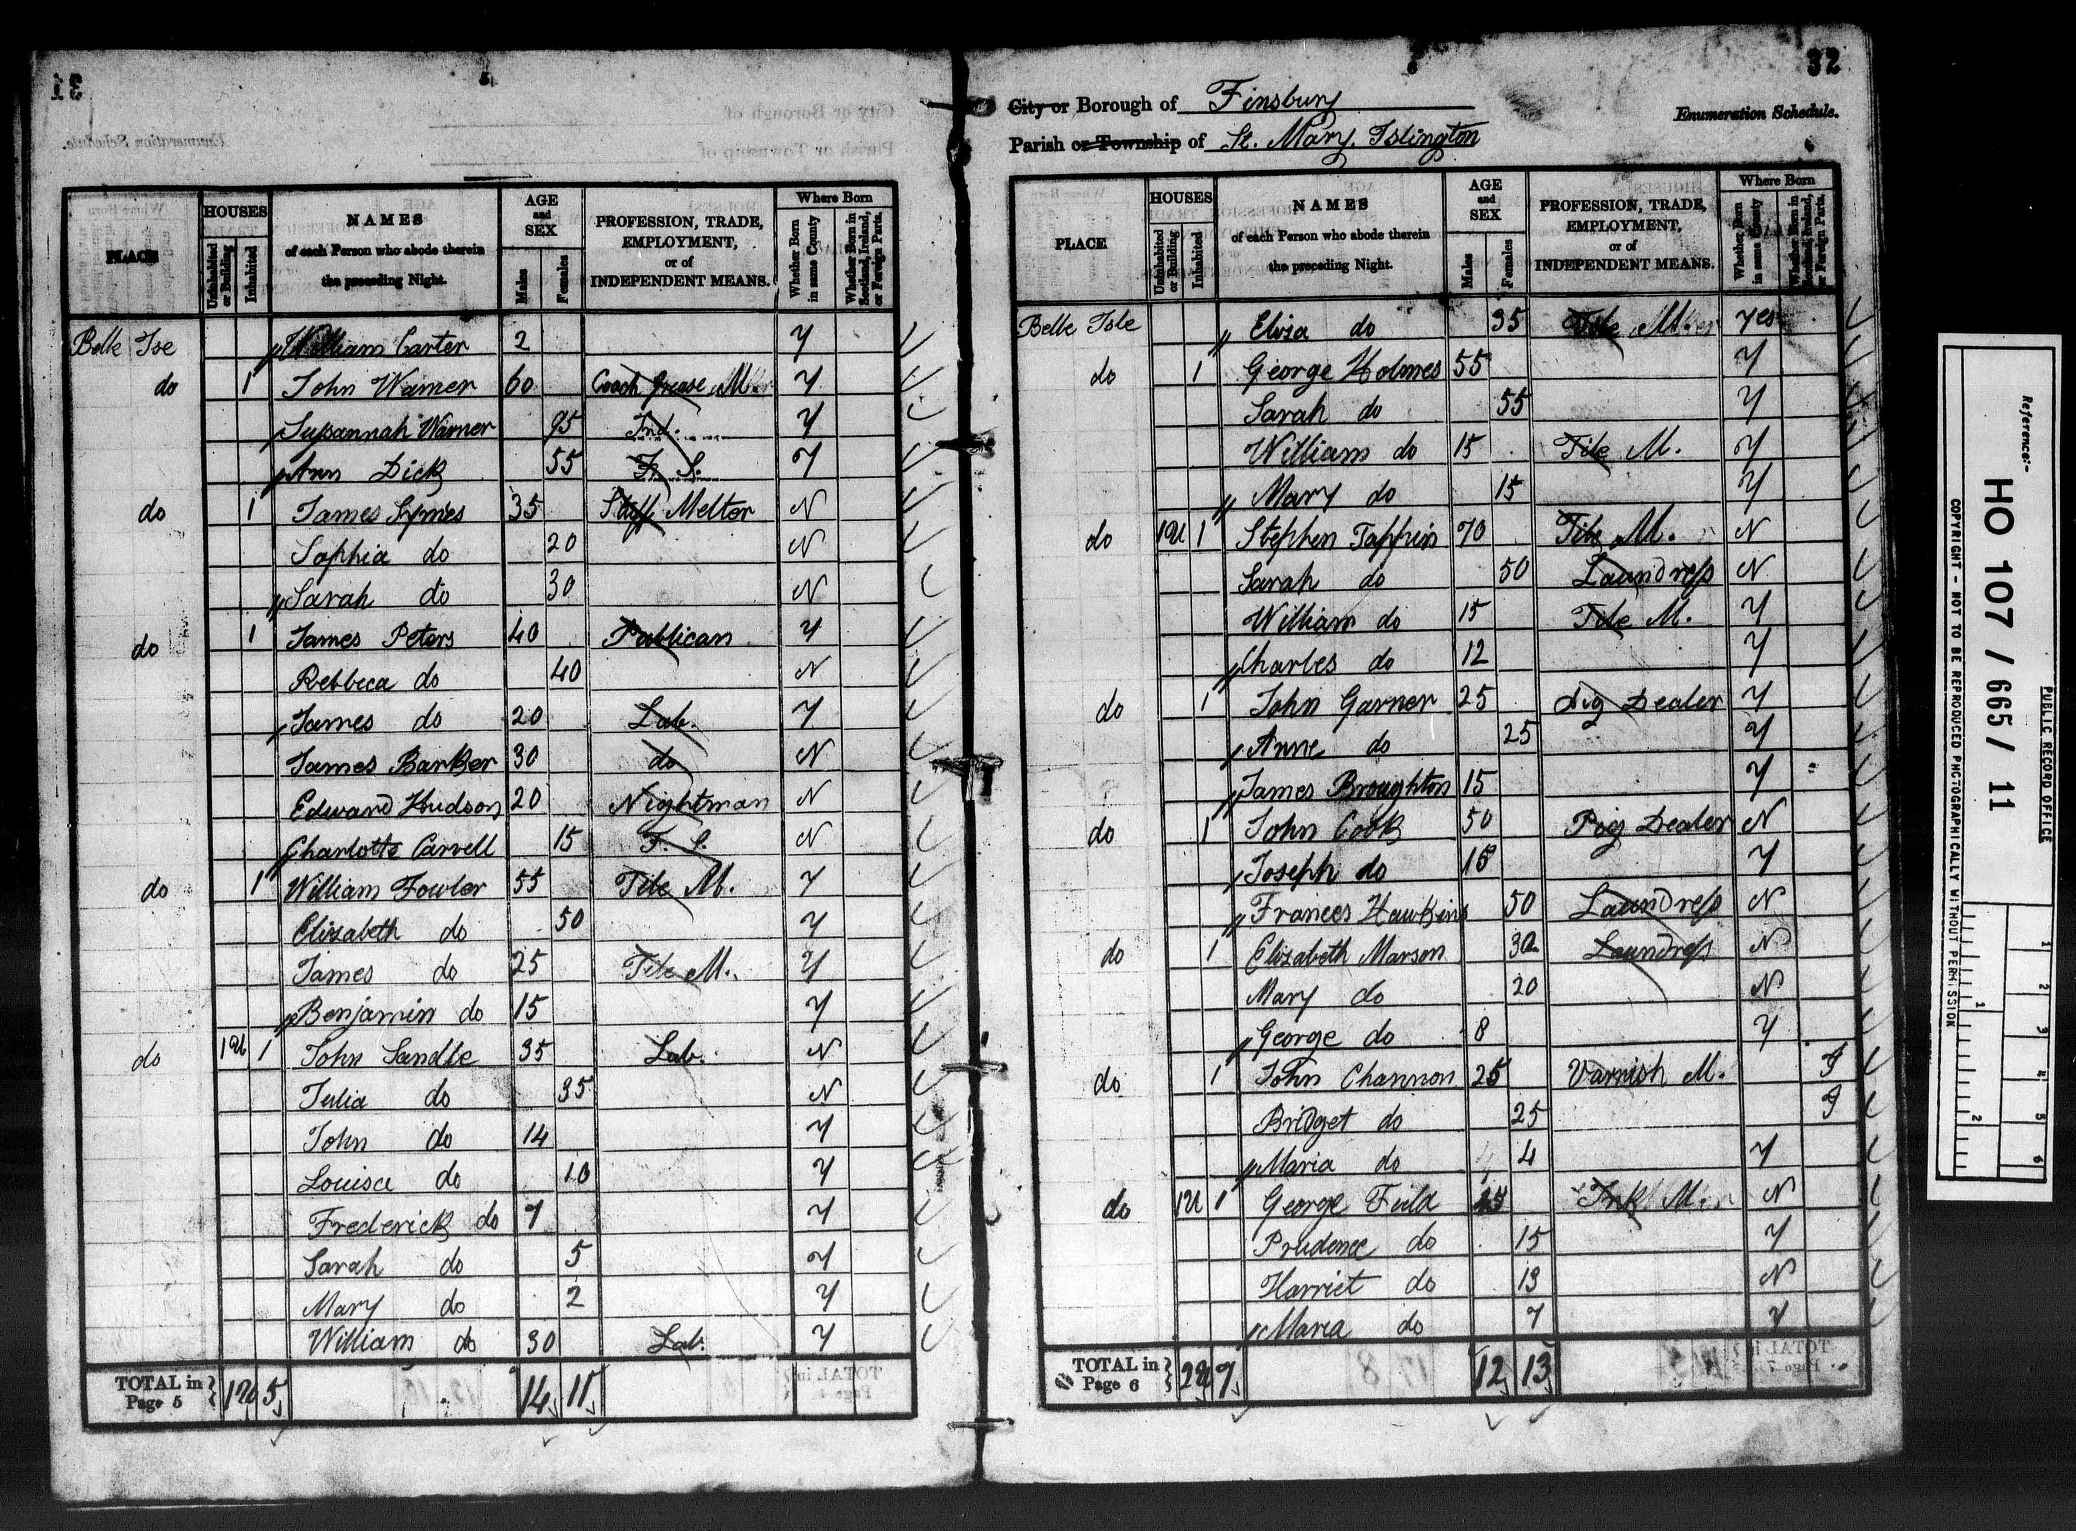 PLACE HOUSES Uninhabited or Building Inhabited NAMES of each Person who abode therein the preceding Night. AGE and SEX Males Females PROFESSION, TRADE, EMPLOYMENT, or of INDEPENDENT MEANS. Where Born Whether Born in same County Whether Born in Scotland, Ireland, or Foreign Parts.
Belle Ise William Carter 2 Y
do 1 John Warner 60 Coach Grease M Y
Susannah Warner 95 Ind. Y
Ann Dick 55 F. S. Y
do 1 James Symes 35 Melter N
Sophia do 20 N
Sarah do 30 N
do 1 James Peters 40 Publican Y
Rebbeca do 40 N
James do 20 Lab. Y
James Barker 30 do N
Edward Hudson 20 Nightman N
Charlotte Carvell 15 F. S. N
do 1 William Fowler 55 Tile M. Y
Elizabeth do 50 Y
James do 25 Tile M. Y
Benjamin do 15 Y
do 1U 1 John Sandle 35 Lab. N
Julia do 35 N
John do 14 Y
Louisa do 10 Y
Frederick do 7 Y
Sarah do 5 Y
Mary do 2 Y
William do 30 Lab. Y
TOTAL in Page 5 1U 5 14 11
32
City or Borough of Finsbury
Enumeration Schedule.
Parish or Township of St. Mary, Islington
PLACE HOUSES Uninhabited or Building Inhabited NAMES of each Person who abode therein the preceding Night. AGE and SEX Males Females PROFESSION, TRADE, EMPLOYMENT, or of INDEPENDENT MEANS. Where Born Whether Born in same County Whether Born in Scotland, Ireland, or Foreign Parts.
Belle Isle Eliza do 35 Tile Yes
do 1 George Holmes 55 Y
Sarah do 55 Y
William do 15 Tile M. Y
Mary do 15 Y
do 1U 1 Stephen Tappin 70 Tile M. N
Sarah do 50 Laundress N
William do 15 Tile M. Y
Charles do 12 Y
do 1 John Garner 25 Pig Dealer Y
Anne do 25 Y
James Broughton 15 Y
do 1 John Cook 50 Pig Dealer N
Joseph do 15 Y
Frances Hawkins 50 Laundress N
do 1 Elizabeth Marson 30 Laundress N
Mary do 20 N
George do 8 Y
do 1 John Channon 25 Varnish M. I
Bridget do 25 I
Maria do 4 Y
do 1U 1 George Field 45 Ink M. N
Prudence do 15 Y
Harriet do 13 N
Maria do 7 Y
TOTAL in Page 6 2U 7 12 13
Reference:-
HO 107 / 665 / 11
PUBLIC RECORD OFFICE
COPYRIGHT - NOT TO BE REPRODUCED PHOTOGRAPHICALLY WITHOUT PERMISSION
1 2 3 4 5 6
1 2